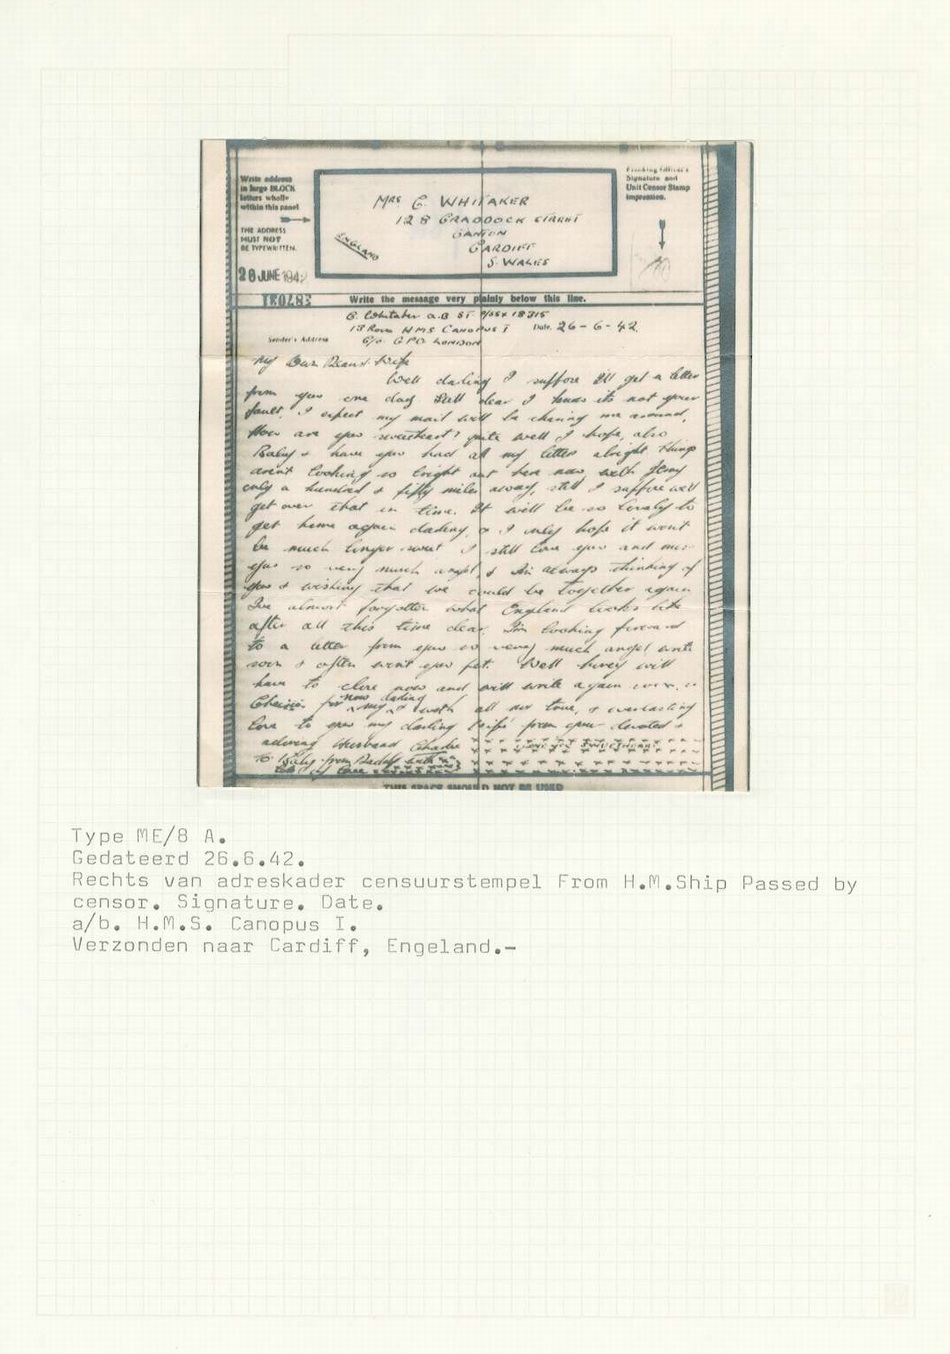 Write address
in large BLOCK
letters wholly
within this panel
THE ADDRESS
MUST NOT
BE TYPEWRITTEN.
MRS C. WHITAKER
128 CRADDOCK STREET
CANTON
CARDIFF
S. WALES
ENGLAND
Signature and
Unit Censor Stamp
impression.
26 JUNE 1942
Write the message very plainly below this line.
C. Whitaker A.B.
13 Room H.M.S CANOPUS I
Date 26-6-42
Sender's Address
C/o G.P.O LONDON
My Own Dearest Wife
Well darling I suppose I'll get a letter
from you one day still dear I know its not your
fault. I expect my mail will be chasing me around.
How are you sweetheart? quite well I hope, also
Baby & have you had all my letters alright things
arent looking so bright out here now with Jerry
only a hundred & fifty miles away, still I suppose we'll
get over that in time. It will be so lovely to
get home again darling, & I only hope it wont
be much longer sweet I still love you and miss
you so very much angel & Im always thinking of
you & wishing that we could be together again
Ive almost forgotten what England looks like
after all this time dear. I'm looking forward
to a letter from you so very much angel write
soon & often wont you pet. Well honey will
have to close now and will write again soon, so
Cheerio for now darling my & with all our time, & everlasting
love to you my darling Wife from your devoted &
adoring Husband Charlie
To Baby from Daddy with
THIS SPACE SHOULD NOT BE USED
Type ME/8 A.
Gedateerd 26.6.42.
Rechts van adreskader censuurstempel From H.M.Ship Passed by
censor. Signature. Date.
a/b. H.M.S. Canopus I.
Verzonden naar Cardiff, Engeland.-